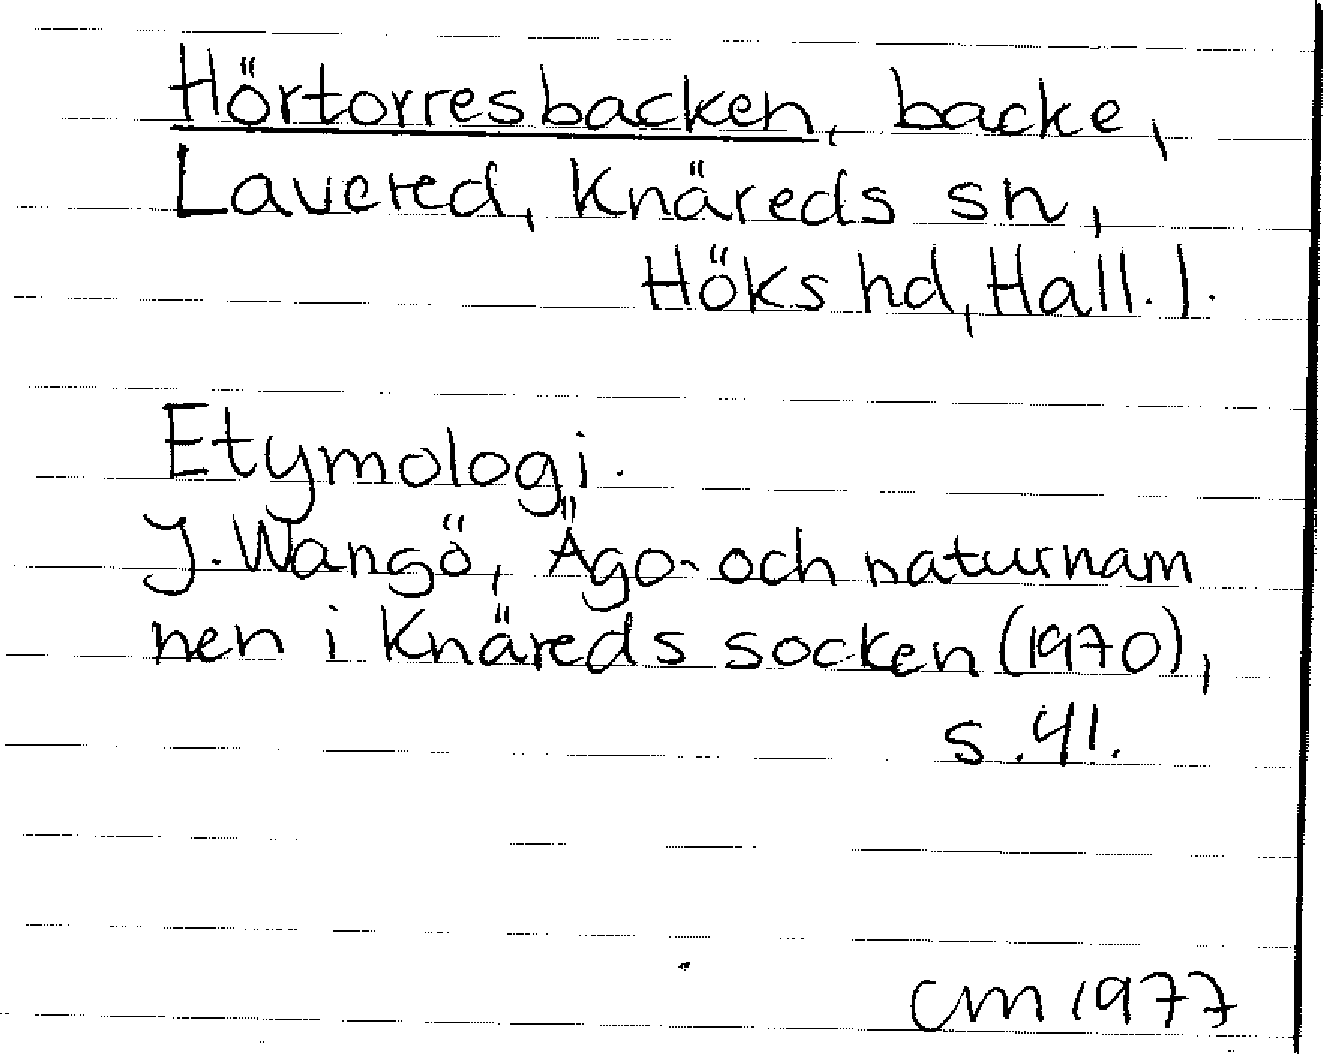 Hörtorresbacken, backe,
Lavered, Knäreds sn,
Höks hd, Hall. l.
Etymologi.
J. Wangö, Ägo- och naturnam
nen i Knäreds socken (1970),
s. 41.
CM 1977